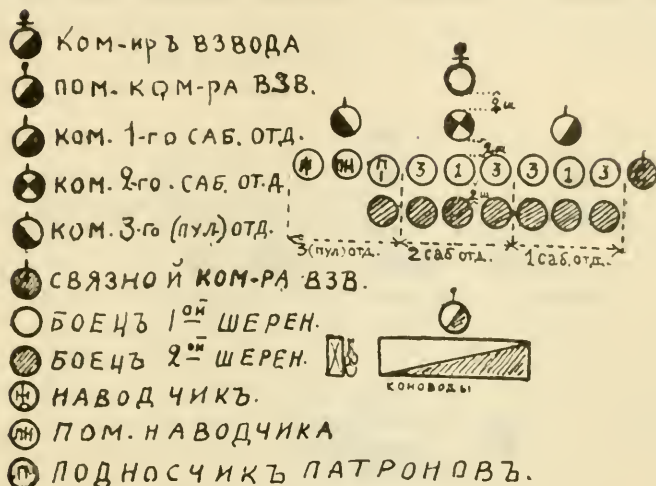 КОМ-ИРЪ ВЗВОДА
ПОМ. КОМ-РА ВЗВ.
КОМ. 1-ГО САБ. ОТД.
КОМ. 2-ГО. САБ. ОТ.Д.
КОМ. 3-ГО (ПУЛ.) ОТД.
СВЯЗНОЙ КОМ-РА ВЗВ.
БОЕЦЪ 1ОЙ ШЕРЕН.
БОЕЦЪ 2ОЙ ШЕРЕН.
Н НАВОДЧИКЪ.
ПН ПОМ. НАВОДЧИКА
П ПОДНОСЧИКЪ ПАТРОНОВЪ.
2ш
2ш
Н ПН П 3 1 3 3 1 3
2ш
3(пул) отд. 2 саб отд. 1 саб. отд.
КОНОВОДЫ